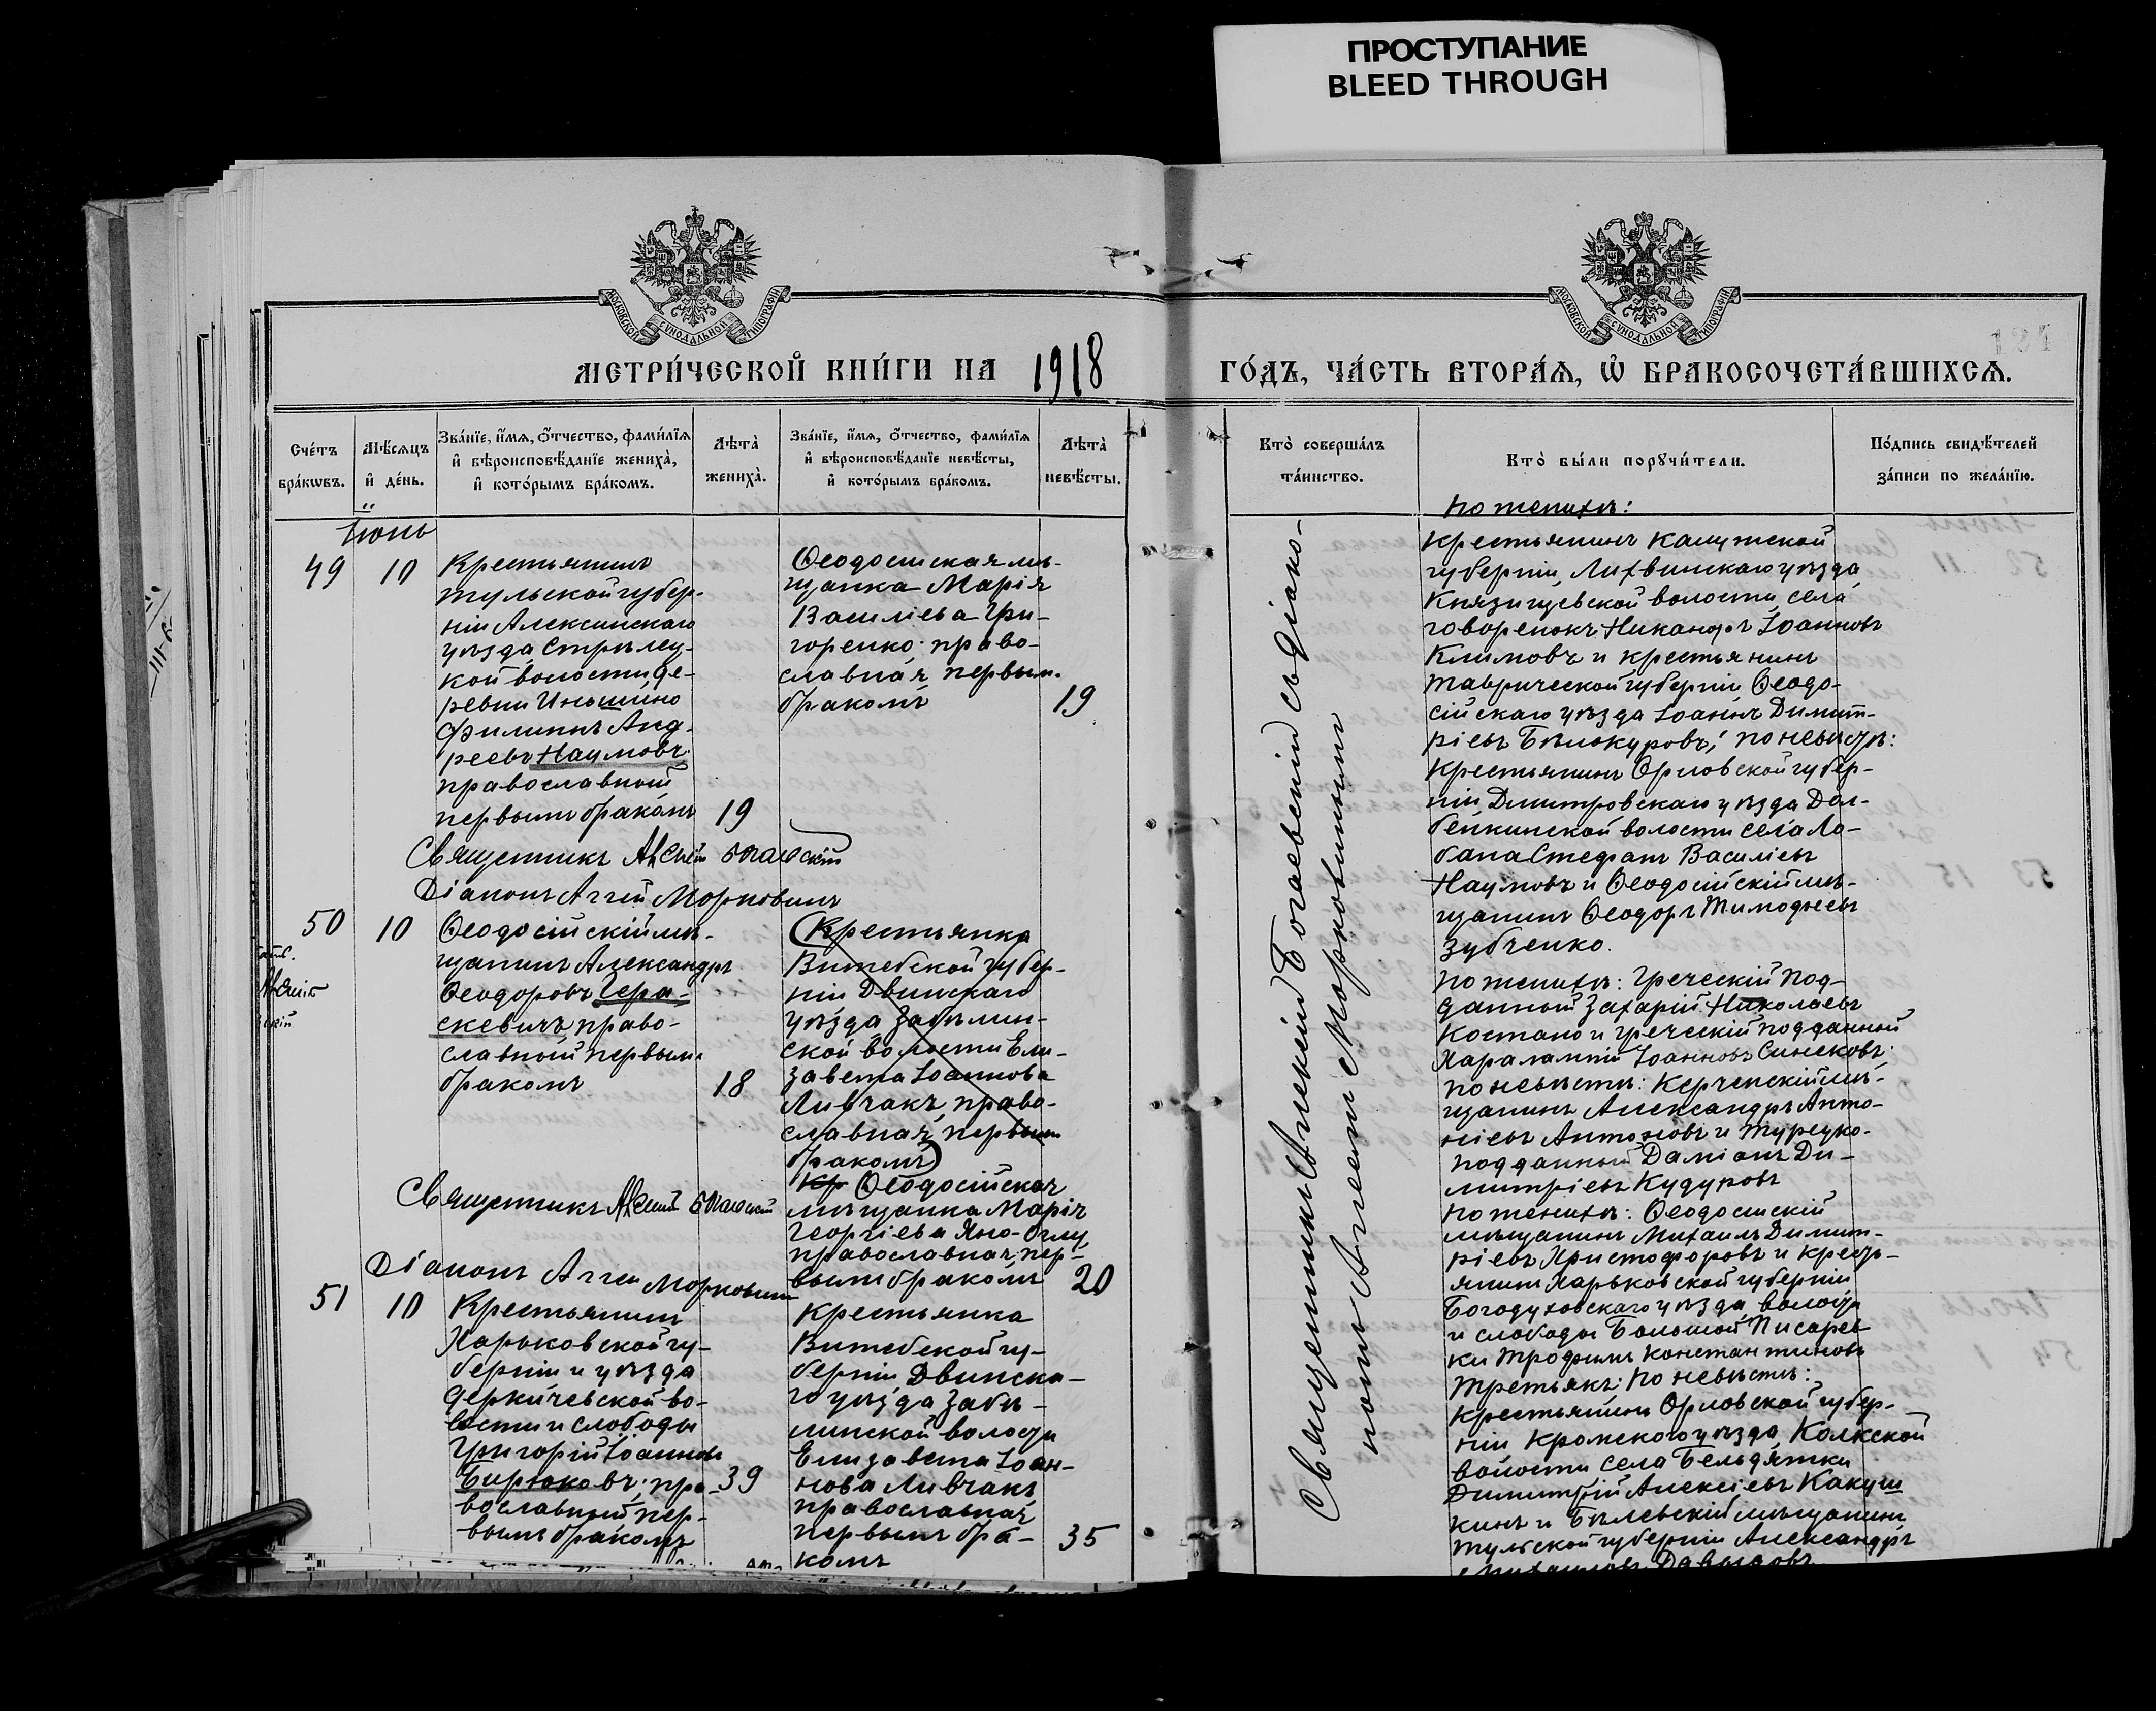 ПРОСТУПАНИЕ
BLEED THROUGH
МОСКОВСКОЙ СѴНОДАЛЬНОЙ ТИПОГРАФІИ
МЕТРИ́ЧЕСКОЙ КНИ́ГИ НА 1918
Сче́тъ бра́кѡвъ.
Мѣ́сѧцъ и҆ де́нь.
Зва́нїе, и҆́мѧ, ѻ҆́тчество, фами́лїѧ
и҆ вѣроисповѣ́данїе жениха̀,
и҆ кото́рымъ бра́комъ.
Лѣта̀ жениха̀.
Зва́нїе, и҆́мѧ, ѻ҆́тчество, фами́лїѧ
и҆ вѣроисповѣ́данїе невѣ́сты,
и҆ кото́рымъ бра́комъ.
Лѣта̀ невѣ́сты.
Іюнь
49 10
Крестьянинъ
Тульской губер-
ніи Алексинскаго
уѣзда Стрѣлец-
кой волости, де-
ревни Иньшино
Филиппъ Анд-
реевъ Наумовъ,
православный
первымъ бракомъ 19
Ѳеодосійская мѣ-
щанка Марія
Васильева Гри-
горенко, право-
славная, первым.
бракомъ 19
Священникъ Алексій Богаевскій
Діаконъ Аггей Морковинъ
50 10
Ѳеодосійскій мѣ-
щанинъ Александръ
Ѳеодоровъ Гера-
скевичъ, право-
славный первым.
бракомъ 18
(Крестьянка
Витебской губер-
ніи Двинскаго
уѣзда Забѣлин-
ской волости Ели-
завета Іоаннова
Ливчакъ, право-
славная, первымъ
бракомъ)
Кр Ѳеодосійская
мѣщанка Марія
Георгіева Яно-Оглу,
православная, пер-
вымъ бракомъ 20
Священникъ Алексій Богаевскій
Діаконъ Аггей Морковинъ
51 10
Крестьянинъ
Харьковской гу-
берніи и уѣзда
Деркачевской во-
лости и слободы
Григорій Іоанновъ
Бирюковъ, пра-
вославный пер-
вымъ бракомъ 39
Крестьянка
Витебской гу-
берніи Двинска-
го уѣзда Забѣ-
линской волости
Елизавета Іоан-
нова Ливчакъ
православная,
первымъ бра-
комъ 35
МОСКОВСКОЙ СѴНОДАЛЬНОЙ ТИПОГРАФІИ
ГО́ДЪ, ЧА́СТЬ ВТОРА́Ѧ, Ѡ҆ БРАКОСОЧЕТА́ВШИХСѦ.
Кто̀ соверша́лъ та́инство.
Кто̀ бы́ли порꙋчи́тели.
По́дпись свидѣ́телей за́писи по жела́нїю.
Священникъ Алексій Богаевскій съ діако-
номъ Аггеемъ Морковинымъ
По женихѣ:
Крестьянинъ Калужской
губерніи, Лихвинскаго уѣзда
Князищевской волости, села
Говоренокъ Никаноръ Іоанновъ
Климовъ и крестьянинъ
Таврической губерніи Ѳеодо-
сійскаго уѣзда Іоаннъ Димит-
ріевъ Бѣлокуровъ; по невѣстѣ:
Крестьянинъ Орловской губер-
ніи Дмитровскаго уѣзда Дол-
бенкинской волости села Ло-
бана Стефанъ Василіевъ
Наумовъ и Ѳеодосійскій мѣ-
щанинъ Ѳеодоръ Тимофеевъ
Зубченко.
По женихѣ: Греческій под-
данный Захарій Николаевъ
Костано и Греческій подданный
Харалампій Іоанновъ Синековъ;
по невѣстѣ: Керченскій мѣ-
щанинъ Александръ Анто-
ніевъ Антоновъ и Турецко-
подданный Даміанъ Ди-
митріевъ Кудуковъ
По женихѣ: Ѳеодосійскій
мѣщанинъ Михаилъ Димит-
ріевъ Христофоровъ и крест-
янинъ Харьковской губерніи
Богодуховскаго уѣзда, волости
и слободы Большой Писарев-
ки Трофимъ Константиновъ
Третьякъ; по невѣстѣ:
Крестьянинъ Орловской губер-
ніи Кромскаго уѣзда, Колкской
волости села Бельдяжки
Димитрій Алексіевъ Какуш
кинъ и Бѣлевскій мѣщанинъ
Тульской губерніи Александръ
Михаиловъ Давыдовъ